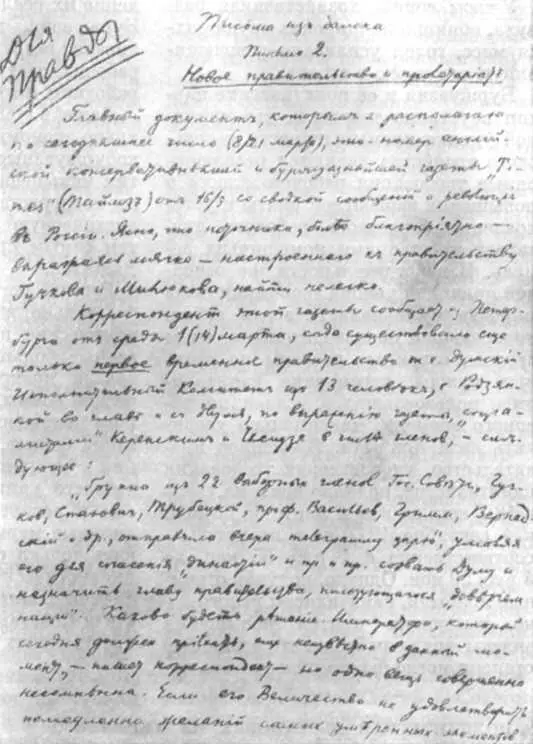 Для
Правды
Письма изъ далека
Письмо 2.
Новое правительство и пролетаріатъ
Главный документъ, которымъ я располагаю
по сегодняшнее число (8/21 марта), это — номеръ англій-
ской консервативнѣйшей и буржуазнѣйшей газеты „Т-
(Таймзъ) отъ 16/3 со сводкой сообщеній о революціи
въ Россіи. Ясно, что источника, болѣе благопріятно —
выражаясь мягко — настроеннаго къ правительству
Гучкова и Милюкова, найти нелегко.
Корреспондентъ этой газеты сообщаетъ изъ Петер-
бурга отъ среды 1 (14) марта, когда существовало еще
только первое временное правительство т. е. думскій
Исполнительный Комитетъ изъ 13 человѣкъ, съ Родзян-
кой во главѣ и съ двумя, по выраженію газеты, „соціа-
листами“ Керенскимъ и Чхеидзе въ числѣ членовъ, — слѣ-
дующее:
„Группа изъ 22 выборныхъ членов Гос. Совѣта, Гуч-
ков, Стахович, Трубецкой, проф. Васильев, Гримм, Вернад-
скій и др., отправила вчера телеграмму царю, умоляя
его для спасенія „династіи“ и пр. и пр. созвать Думу и
назначить главу правительства, пользующагося „довѣріем
націи“. Каково будетъ рѣшеніе Императора, который
сегодня должен пріѣхать, еще неизвѣстно в данный мо-
мент, — пишет корреспондент — но одна вещь совершенно
несомнѣнна. Если его Величество не удовлетворитъ
немедленно желаній самых умѣренных элементов